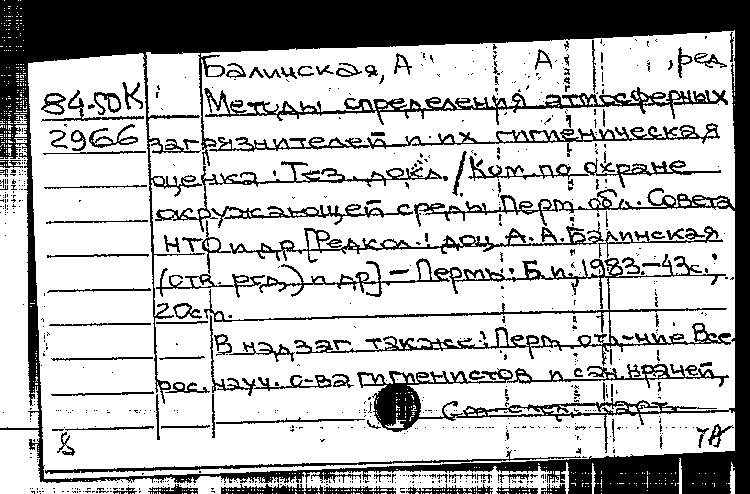 Балинская, А А , ред.
84-50К Методы определения атмосферных
2966 загрязнителей и их гигиеническая
оценка: Тез. докл. / Ком. по охране
окружающей среды Перм. обл. Совета
НТО и др. [Редкол.: доц. А. А. Балинская
(отв. ред.) и др]. – Пермь: Б. и., 1983. – 43 с.;
20 см.
В надзаг. также: Перм. отд-ние Все-
рос. науч. о-ва гигиенистов и сан. врачей,
См. след. карт.
8 7А